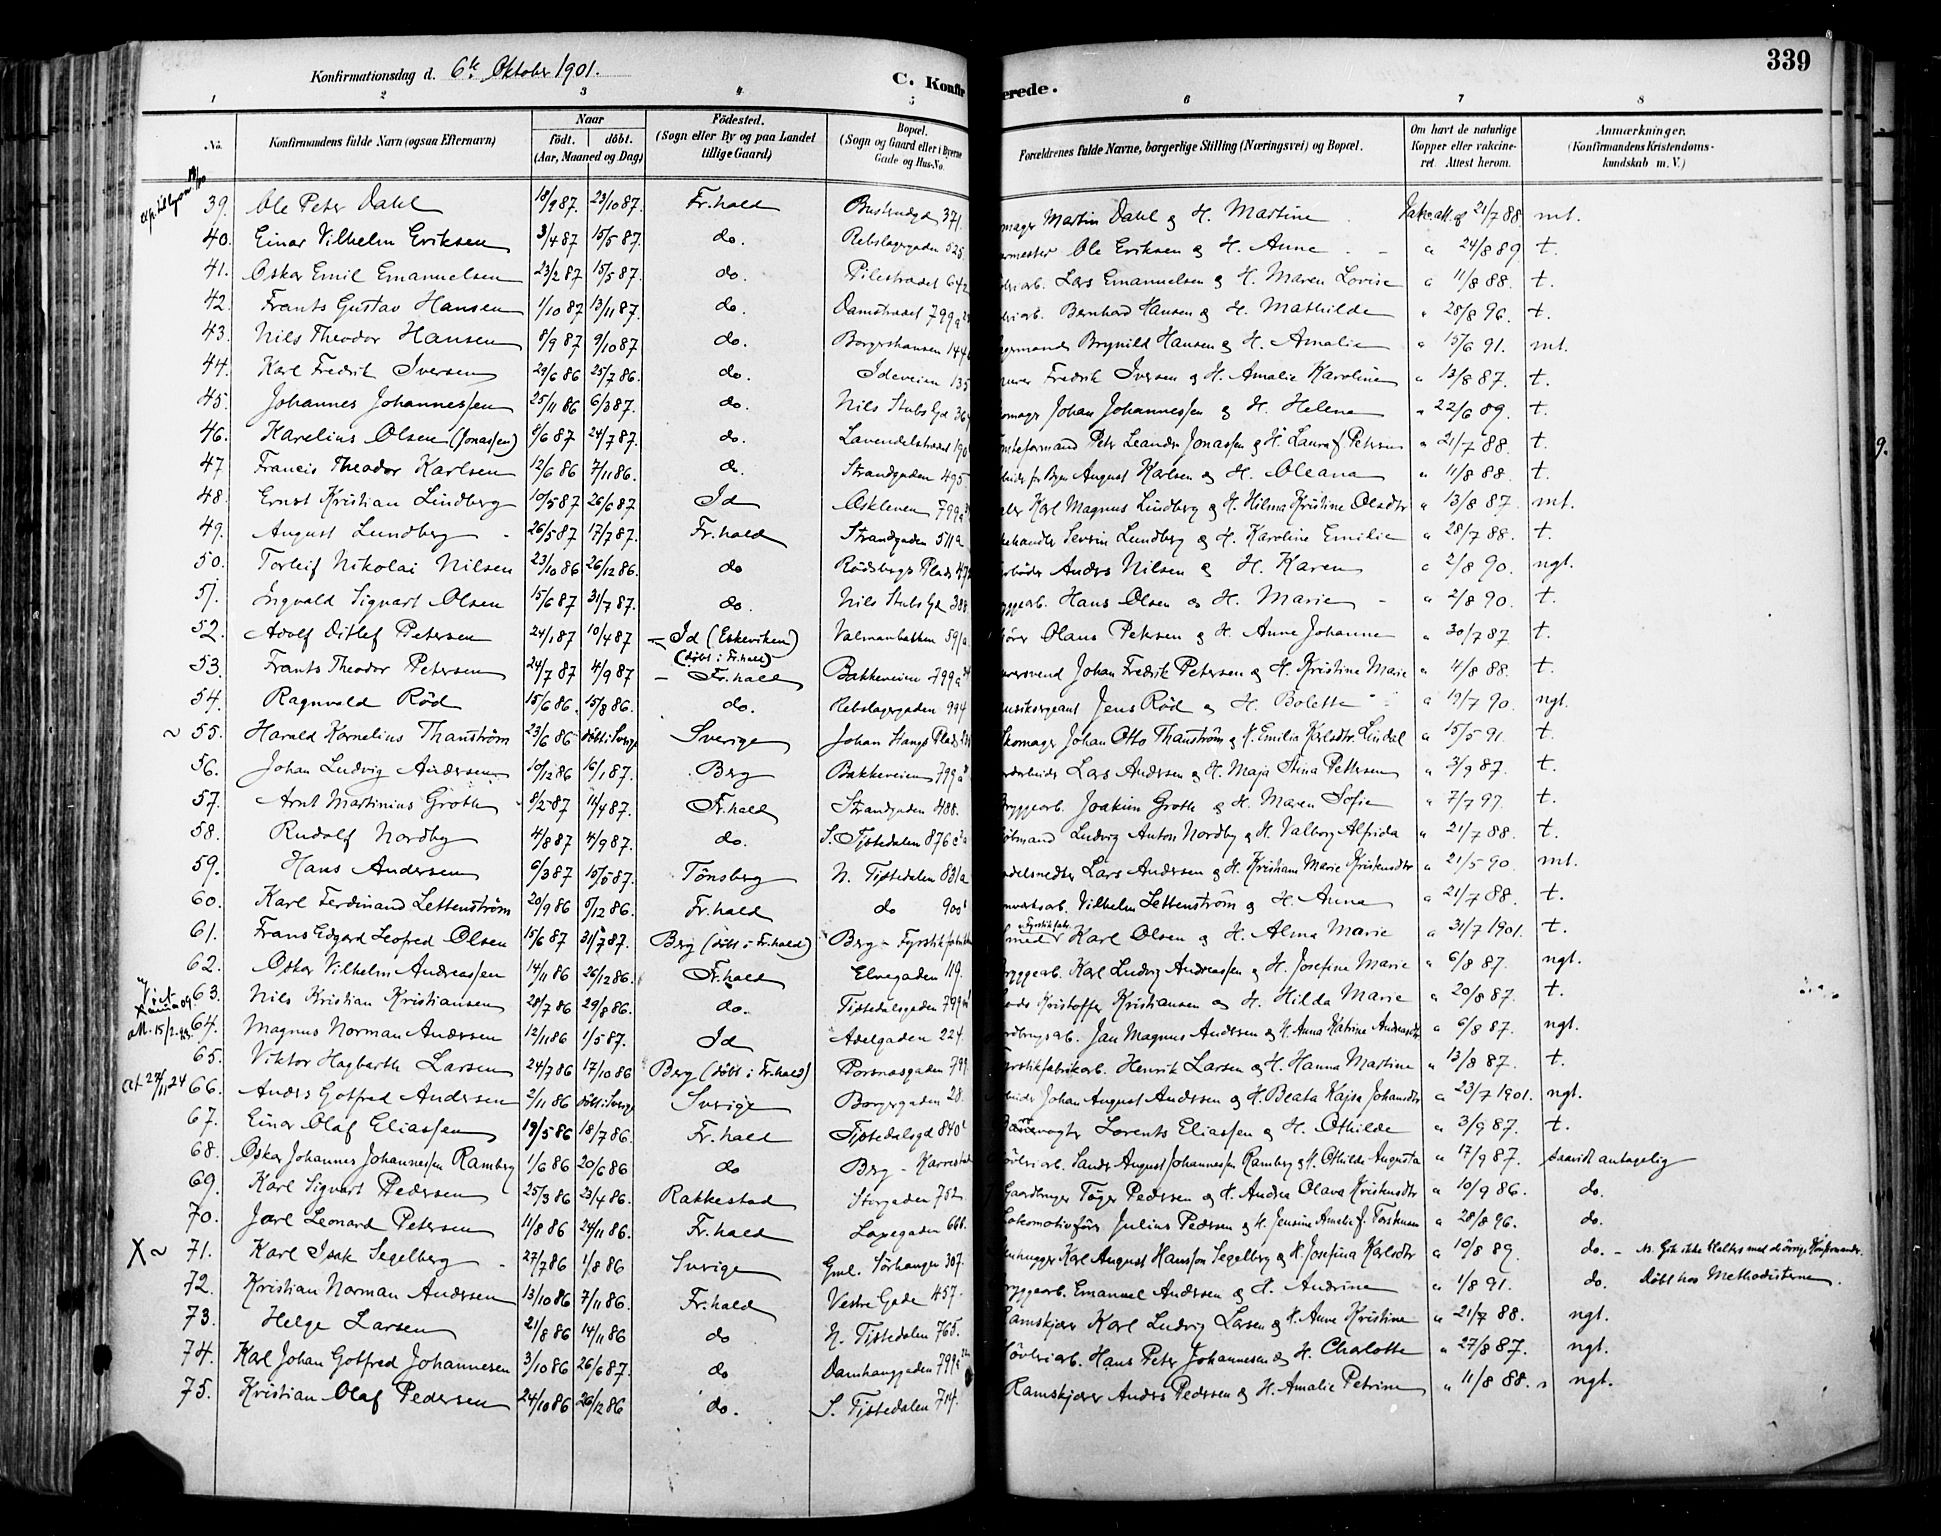 339
Konfirmationsdag d. 6te Oktober 1901.
C. Konfir erede.
1 2 3 4 5 6 7 8
No. Konfirmandens fulde Navn (ogsaa Efternavn) Naar født. døbt. (Aar, Maaned og Dag) Fødested. (Sogn eller By og paa Landet tillige Gaard) Bopæl. (Sogn og Gaard eller i Byerne Gade og Hus-No. Forældrenes fulde Navne, borgerlige Stilling (Næringsvei) og Bopæl. Om havt de naturlige Kopper eller vakcineret. Attest herom. Anmærkninger. (Konfirmandens Kristendomskundskab m. V.)
39. Ole Peter Dahl 18/9 87. 23/10 87. Fr.hald 371 Martin Dahl og H. Martine 21/7 88. mt.
40. Einar Vilhelm Eriksen 3/4 87 15/5 87. do. Rebslagergaden 525 Ole Eriksen og H. Anne " 24/8 89 t.
41. Oskar Emil Emanuelsen 23/2 87 15/5 87. do. Pilestrædet 642 Lars Emanuelsen og H. Maren Lovise " 11/8 88. t.
42. Frants Gustav Hansen 1/10 87 13/11 87. do. Damstrædet 799a Bernhard Hansen og H. Mathilde " 28/8 96. t.
43. Nils Theodor Hansen 8/9 87 9/10 87 do. Borgershausen 144 Brynild Hansen og H. Amalie " 15/6 91. mt.
44. Karl Fredrik Iversen 29/6 86 25/7 86. do. Ideveien 135 Fredrik Iversen og H. Amalie Karoline " 13/8 87. t.
45. Johannes Johannessen 25/11 86 6/3 87. do. Nils Stubs Gd 36 Johan Johannessen og H. Helene " 22/6 89. t.
46. Karelius Olsen (Jonassen) 8/6 87 24/7 87. do. Lavendelstrædet 190 Peter Leander Jonassen og H. Laura f. Petersen " 21/7 88. t.
47 Francis Theodor Karlsen 12/6 86 7/11 86. do. Strandgaden 495 August Karlsen og H. Oleana " 11/8 88. t.
48. Ernst Kristian Lindberg 10/5 87 26/6 87 Id Askleven 799a Karl Magnus Lindberg og H. Hilma Kristine Olsdtr " 13/8 87. mt.
49. August Lundberg 26/5 87 17/7 87. Fr.hald Strandgaden 511a Severin Lundberg og H. Karoline Emilie " 28/7 88. t.
50. Torleif Nikolai Nilsen 23/10 86 26/12 86. do Rødsbergs Plads Anders Nilsen og H. Karen " 2/8 90. ngt.
51. Ingvald Sigvart Olsen 15/6 87 31/7 87. do. Nils Stubs Gd 388 Hans Olsen og H. Marie " 2/8 90. t.
52. Adolf Ditlef Petersen 24/1 87 10/4 87 Id (Eskeviken) (døbt i Fr.hald) Valmanbakken 891a Olaus Petersen og H. Anne Johanne " 30/7 87 t.
53. Frants Theodor Petersen 24/7 87 4/9 87 Fr.hald Bakkeveien 799a Johan Fredrik Petersen og H. Kristine Marie " 4/8 88. t.
54. Ragnvald Rød 15/6 86. 15/8 86. do. Rebslagergaden 994 Jens Rød og H. Bolette " 19/7 90. ngt.
~ 55. Harald Kornelius Thanstrøm 23/6 86 døbt i Sverige Sverige Johan Stangs Plads Skomager Johan Otto Thanstrøm og H. Emilia Karlsdtr. Lindal " 15/5 91. t.
56. Johan Ludvig Andersen 10/12 86 16/1 87. Berg Bakkeveien 799a Lars Andersen og H. Maja Stina Pettersen " 3/9 87. t.
57. Arnt Martinius Groth 8/2 87 11/4 87. Fr.hald Strandgaden 488. Bryggearb. Joakim Groth og H. Maren Sofie " 7/7 97. t.
58. Rudolf Nordby 4/8 87 4/9 87. do. S. Tistedalen 876 Ludvig Anton Nordby og H. Valborg Alfrida " 21/7 88. t.
59. Hans Andersen 6/3 87 15/5 87. Tønsberg N. Tistedalen 831a Lars Andersen og H. Kristiane Marie Kristensdtr " 21/5 90. mt.
60. Karl Ferdinand Lettenstrøm 20/9 86 5/12 86. Fr.hald do 900 Vilhelm Lettenstrøm og H. Anna " 21/7 88. t.
61. Frans Edgard Leofred Olsen 15/6 87 31/7 87. Berg (døbt i Fr.hald) Berg - Fyrstikfabrikken Smed v. Fyrstikfabr. Karl Olsen og H. Alma Marie " 31/7 1901. t.
62. Oskar Vilhelm Andreassen 14/11 86 26/12 86. Fr.hald Elvegaden 119. Bryggearb. Karl Ludvig Andreassen og H. Josefine Marie " 6/8 87. ngt.
63. Nils Kristian Kristiansen 28/7 86 29/8 86. do. Tistedalsgaden 799 Kristoffer Kristiansen og H. Hilda Marie " 20/8 87. t.
64. Magnus Norman Andersen 12/11 86 1/5 87. Id Adelgaden 224. Jan Magnus Andersen og H. Anna Katrine Andreasdtr " 6/8 87. ngt.
65. Viktor Hagbarth Larsen 24/7 86 17/10 86 Berg (døbt i Fr.hald) Porsnæsgaden 799 Fyrstikfabrikarb. Henrik Larsen og H. Hanna Martine " 13/8 87. t.
66. Anders Gotfred Andersen 2/11 86 døbt i Sverige Sverige Borgergaden 28. Johan August Andersen og H. Beata Kajsa Johansdtr " 23/7 1901. ngt.
67. Einar Olaf Eliassen 19/5 86 18/7 86. Fr.hald Tistedalsgd 840 Banevogter Lorents Eliassen og H. Othilde " 3/9 87. t.
68. Oskar Johannes Johannessen Ramberg 1/6 86 20/6 86 do Berg - Karrestad Høvleriarb. Sander August Johannessen Ramberg og H. Othilde Augusta " 17/9 87. saavidt antagelig
69. Karl Sigvart Pedersen 25/3 86 23/4 86. Rakkestad Storgaden 752 Gaardbruger Tøger Pedersen og H. Andrea Olava Kristensdtr " 10/9 86. do.
70. Jarl Leonard Petersen 11/8 86 24/11 86. Fr.hald Løxegaden 668. Lokomotivfører Julius Pedersen og H. Jensine Amalie f. Torstensen " 28/8 96. do.
X ~ 71. Karl Isak Segelberg 27/7 86 1/8 86 Sverige Gml. Sørhaugen 307. Stenhugger Karl August Hansson Segelberg og H. Josefina Karlsdtr " 10/8 89. do. - NB. Gik ikke til alters med de øvrige Konfirmander.
72. Kristian Norman Andersen 13/10 86 7/11 86. Fr.hald Vestre Gade 457. Bryggearb. Emanuel Andersen og H. Andrine " 1/8 91. do. Døbt hos Methodisterne.
73. Helge Larsen 21/8 86 14/11 86 do N. Tistedalen 765. Ramskjærer Karl Ludvig Larsen og H. Anne Kristine " 21/7 88. ngt.
74. Karl Johan Gotfred Johannesen 3/10 86 26/6 87. do Damhauggaden 799a Høvleriarb. Hans Peter Johannesen og H. Charlotte " 27/8 87. ngt.
75. Kristian Olaf Pedersen 24/10 86 26/12 86 do. S. Tistedalen 714. Ramskjærer Anders Pedersen og H. Amalie Petrine " 11/8 88. ngt.